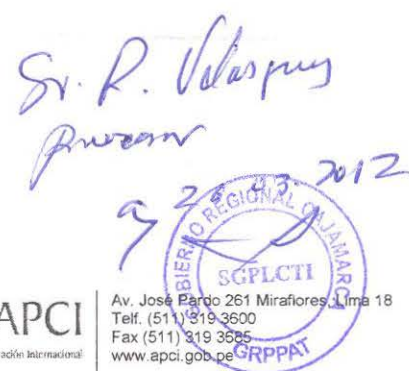 Sr. R. Velasquez
procesar
26.03.2012
GOBIERNO REGIONAL CAJAMARCA
SGPLCTI
GRPPAT
APCI
ación Internacional
Av. José Pardo 261 Miraflores, Lima 18
Telf. (511) 319 3600
Fax (511) 319 3685
www.apci.gob.pe